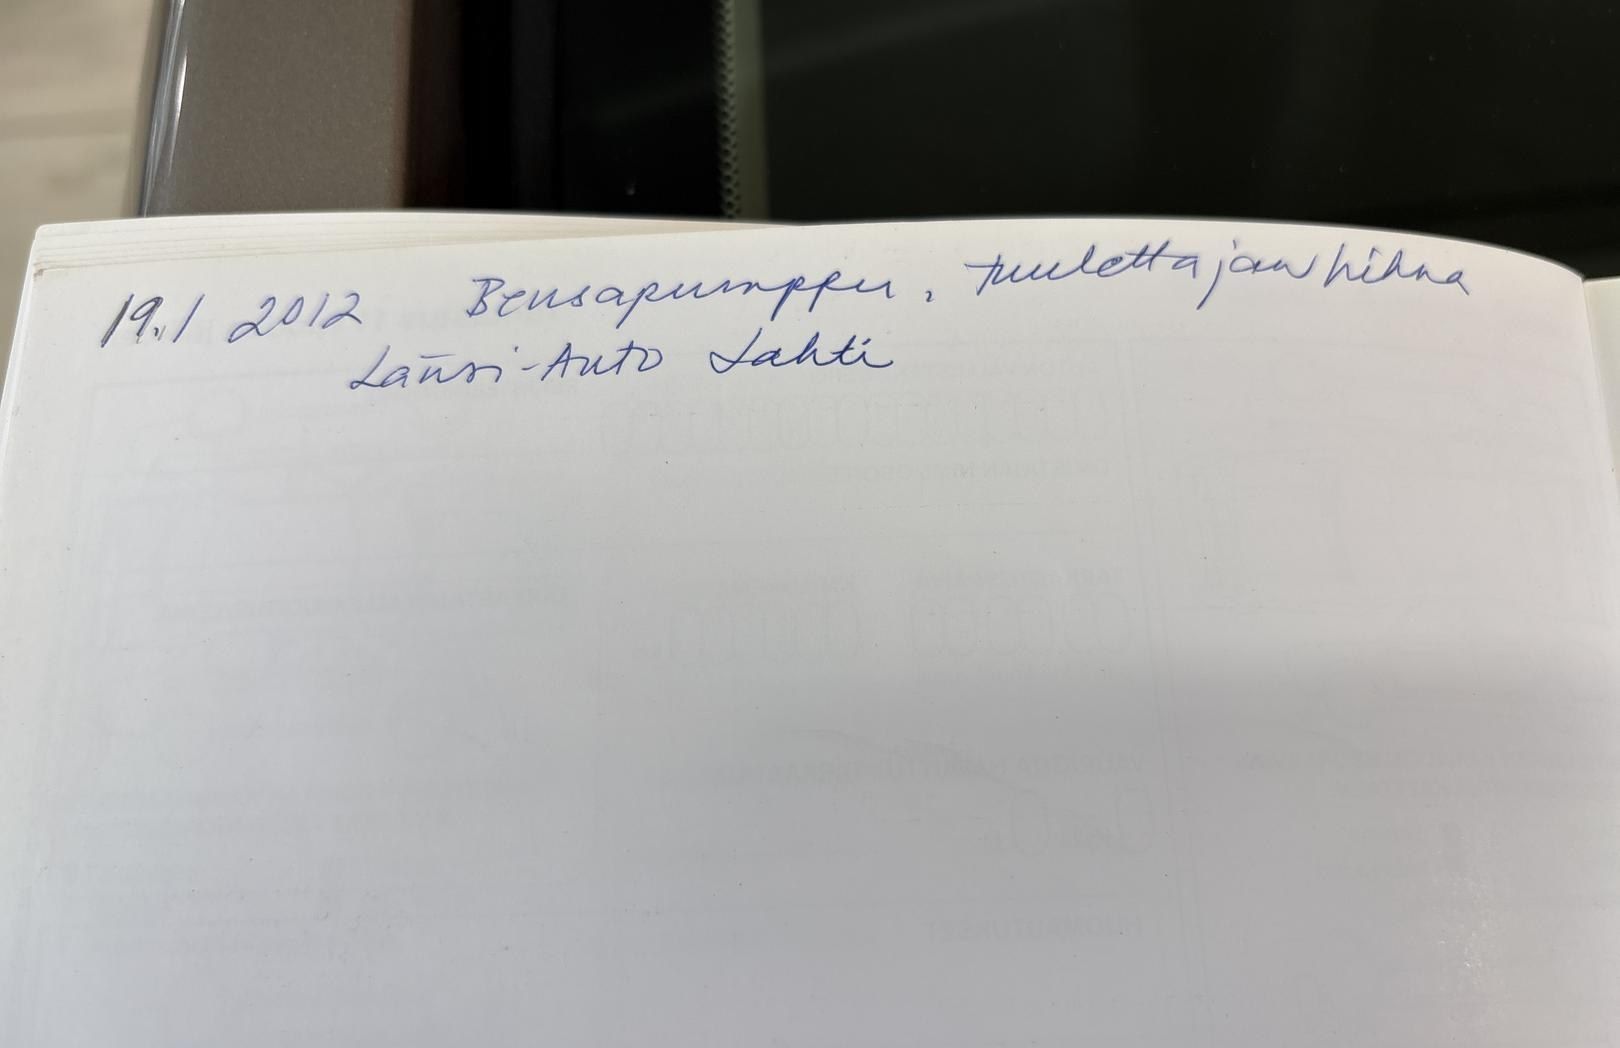 19.1 2012 Bensapumppu, tuulettajan hihna
Länsi-Auto Lahti
HUOMAUTUKSET